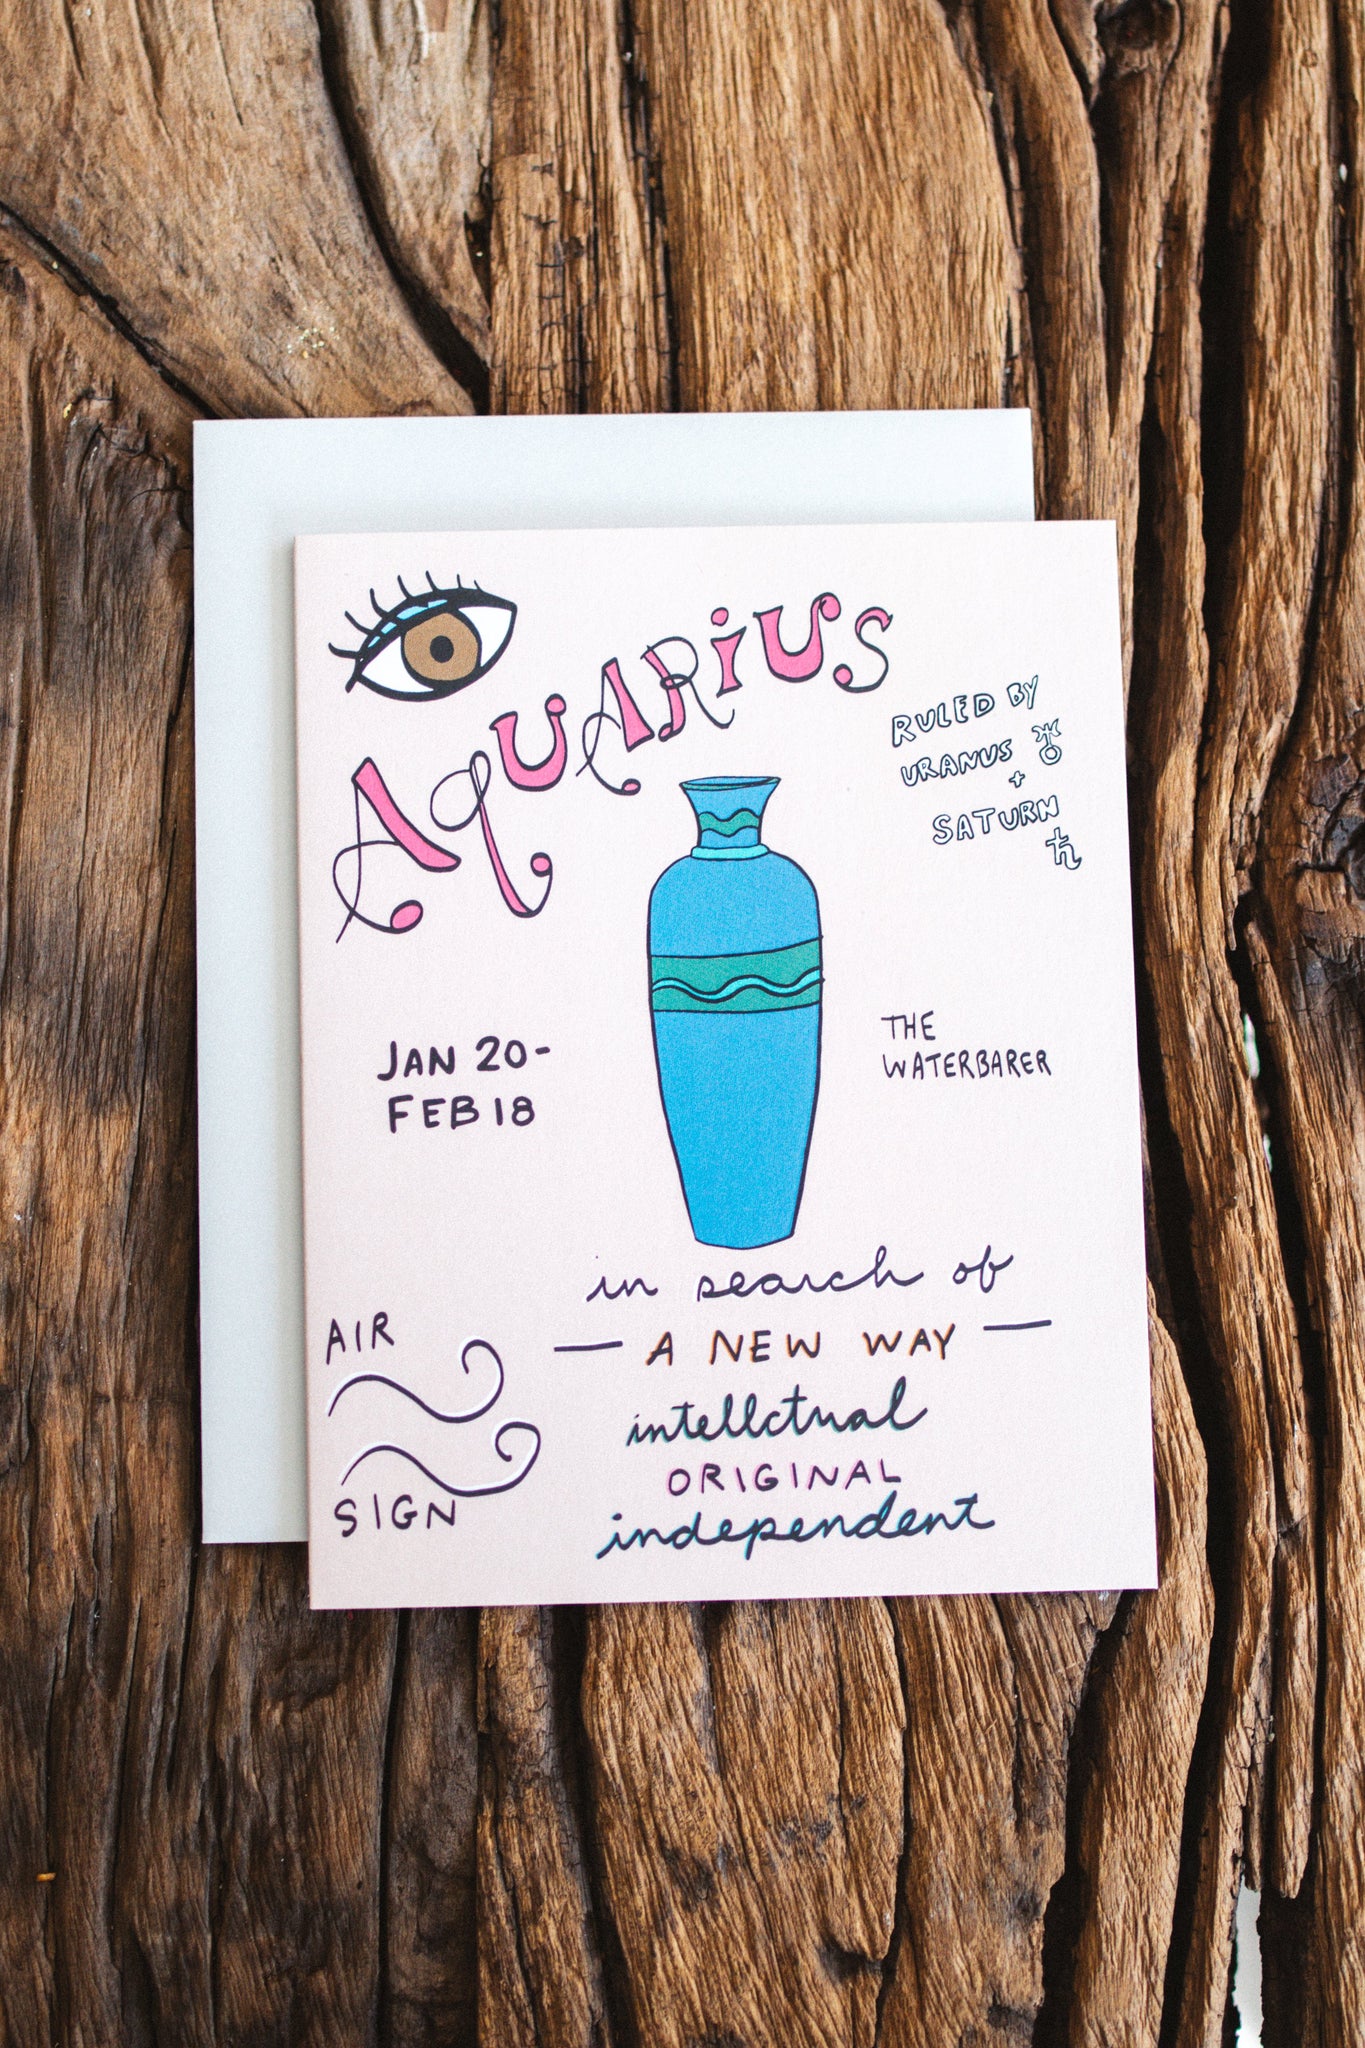 AQUARIUS
RULED BY
URANUS ♅
+
SATURN
♄
JAN 20-
FEB 18
THE
WATERBARER
AIR
SIGN
in search of
— A NEW WAY —
intellctual
ORIGINAL
independent